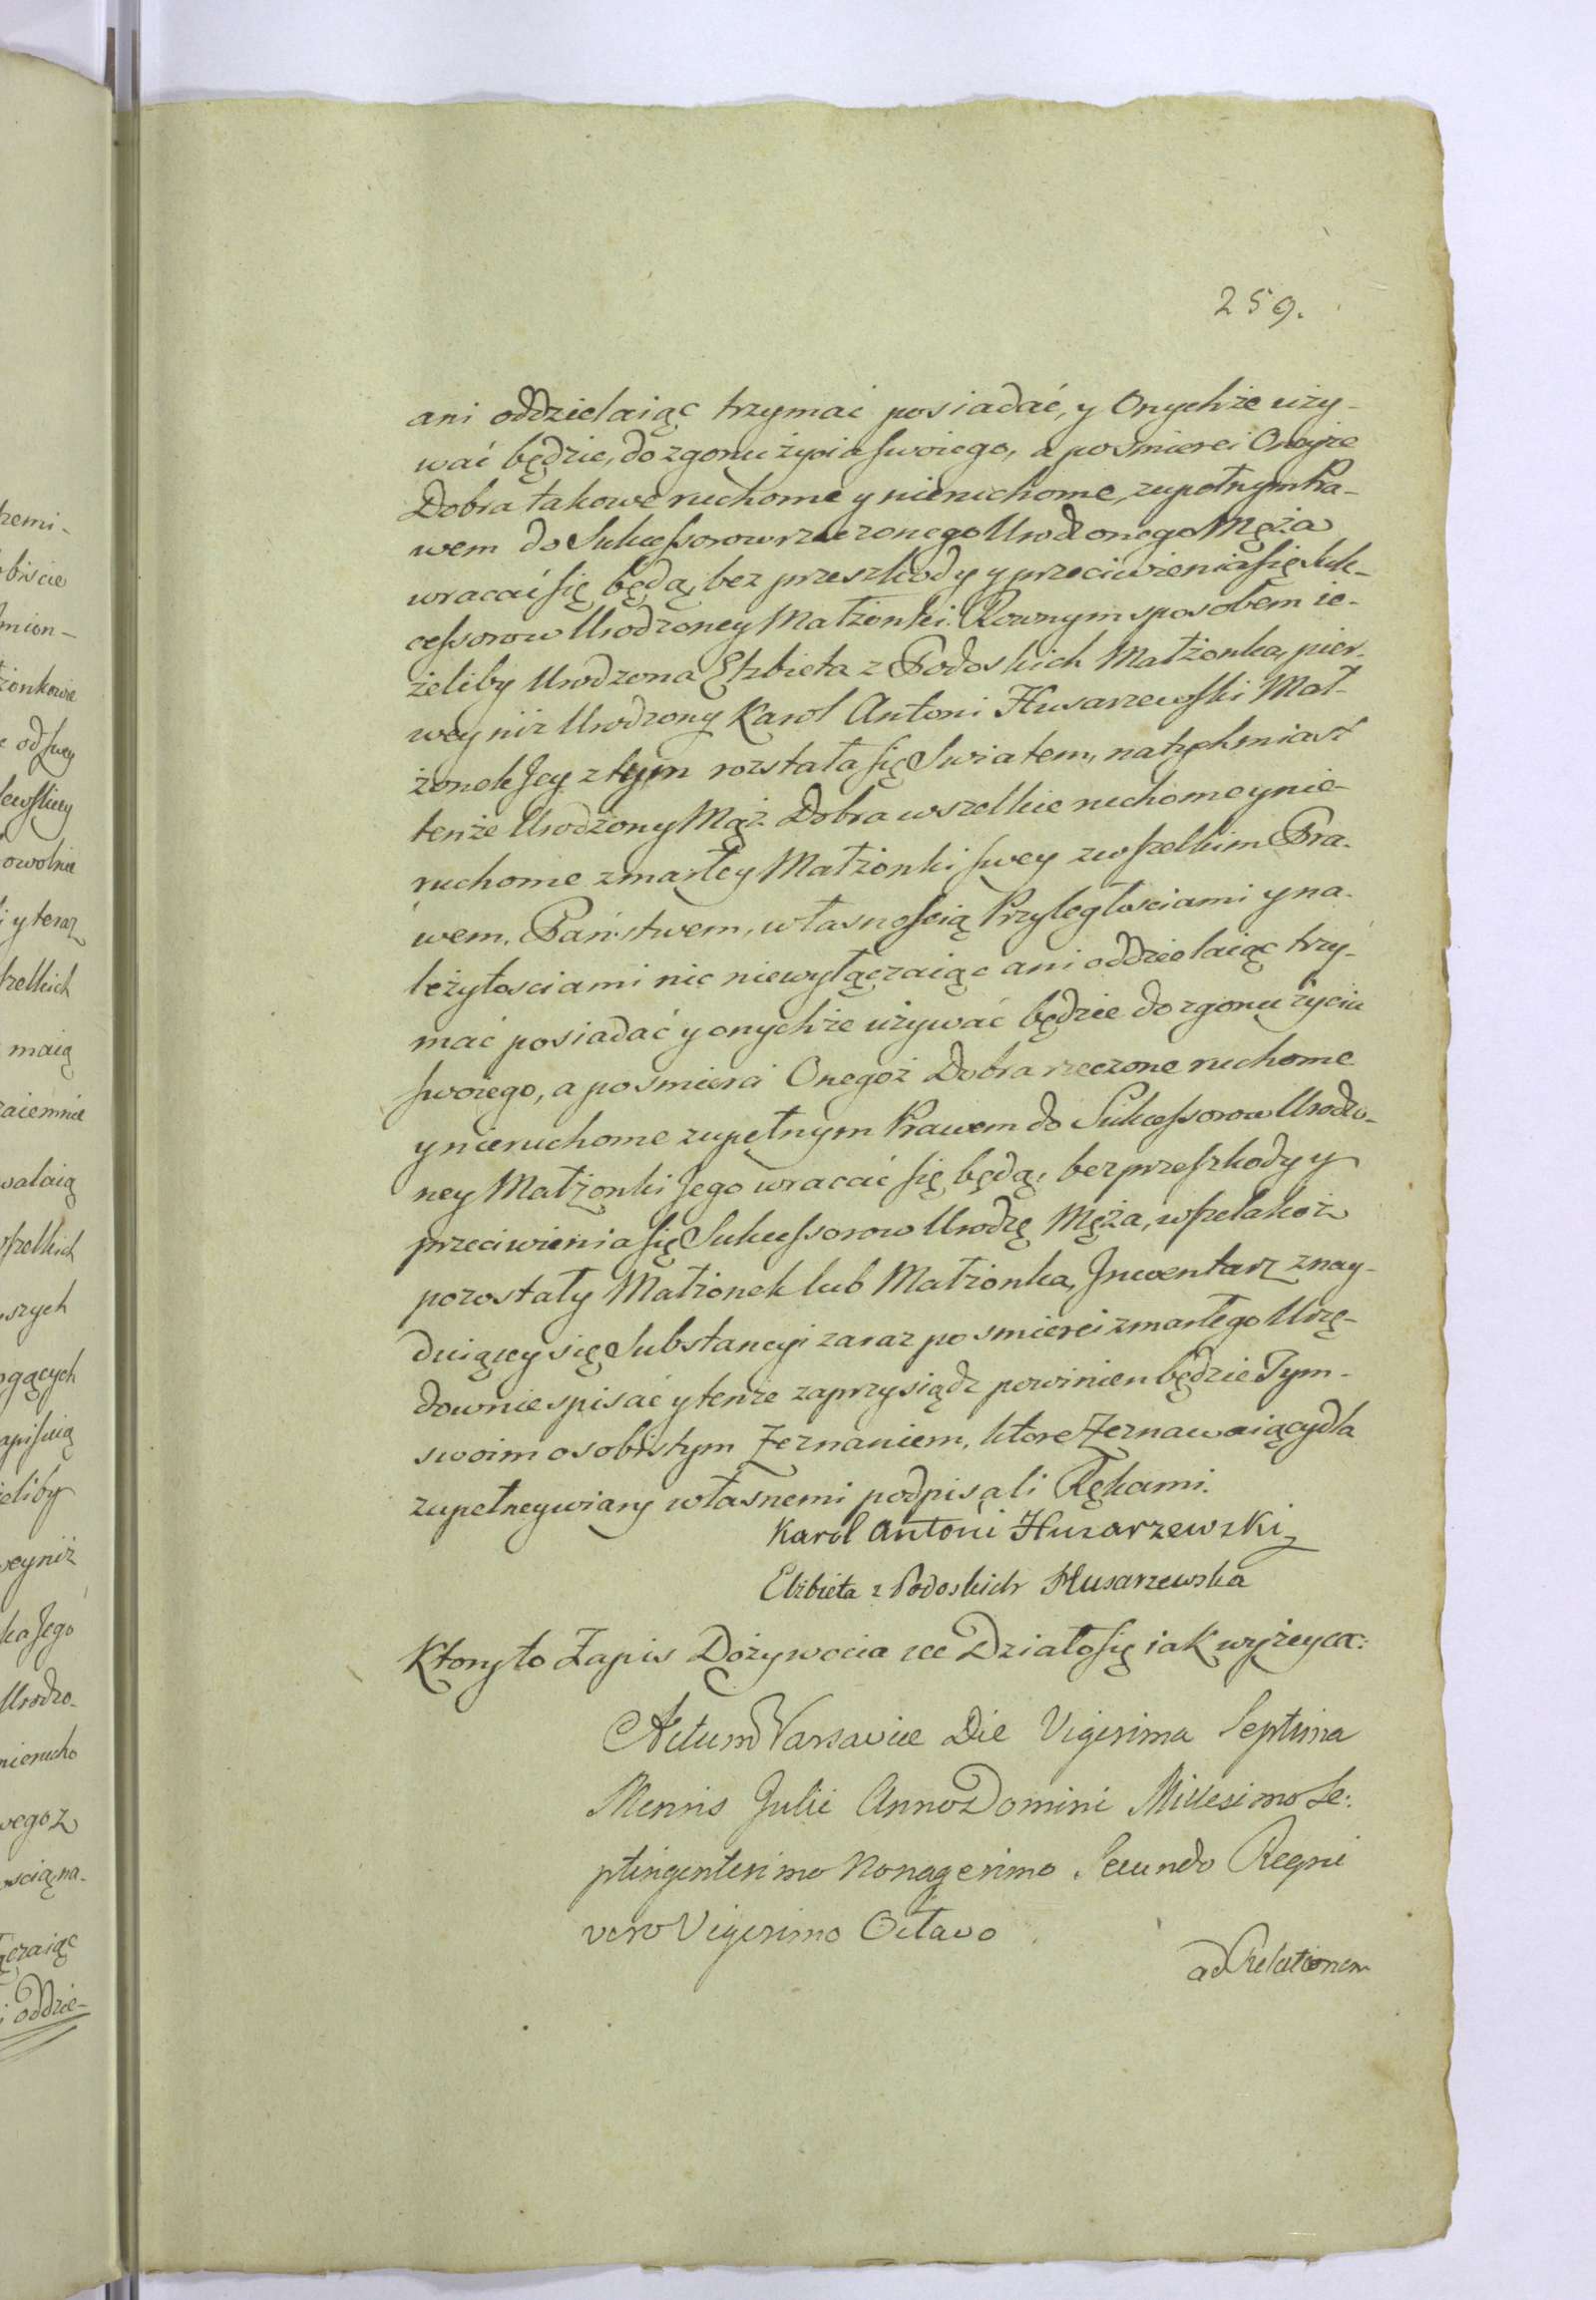 259.
ani oddzielaiąc trzymać posiadać, y Onychże uży-
wać będzie, do zgonu życia swoiego, a po smierci Oneyże
Dobra takowe ruchome y nieruchome, zupełnym Pra-
wem do Sukcessorow rzeczonego Urodzonego Męża
wracać się będą, bez przeszkody y przeciwienia się Suk-
cessorow Urodzoney Małżonki. Rownym sposobem ie-
żeliby Urodzona Elzbieta z Podoskich Małżonka, pier-
wey niż Urodzony Karol Antoni Husarzewski Mał-
żonek Jey z tym rozstała się Swiatem, natychmiast
tenże Urodzony Mąż. Dobra wszelkie ruchome y nie-
ruchome zmarłey Małżonki swey z wszelkim Pra-
wem, Państwem, własnością Przyległosciami y na-
leżytosciami nic niewyłączaiąc ani oddzielaiąc trzy-
mać posiadać y onychże używać będzie do zgonu życia
swoiego, a po smierci Onegoż Dobra rzeczone ruchome
y nieruchome zupełnym Prawem do Sukcessorow Urodzo-
ney Małżonki Jego wracać się będą, bez przeszkody y
przeciwienia się Sukcessorow Urodzę Męża, wszelakoż
pozostały Małżonek lub Małżonka, Jnwentarz znay-
duiącey się Substancyi zaraz po smierci zmarłego Urzę-
downie spisać y tenże zaprzysiądz powinien będzie Tym-
swoim osobistym Zeznaniem, ktore Zeznawaiący dla
zupełney wiary własnemi podpisali Rękami.
Karol Antoni Husarzewski
Elżbieta z Podoskich Husarzewska
Ktory to Zapis Dożywocia &c Działo się iak wyżey &c:
Actum Varsaviæ Die Vigesima Septima
Mensis Julii Anno Domini Millesimo Se-
ptingentesimo Nonagesimo Secundo Regni
vero Vigesimo Octavo
ad Relationem